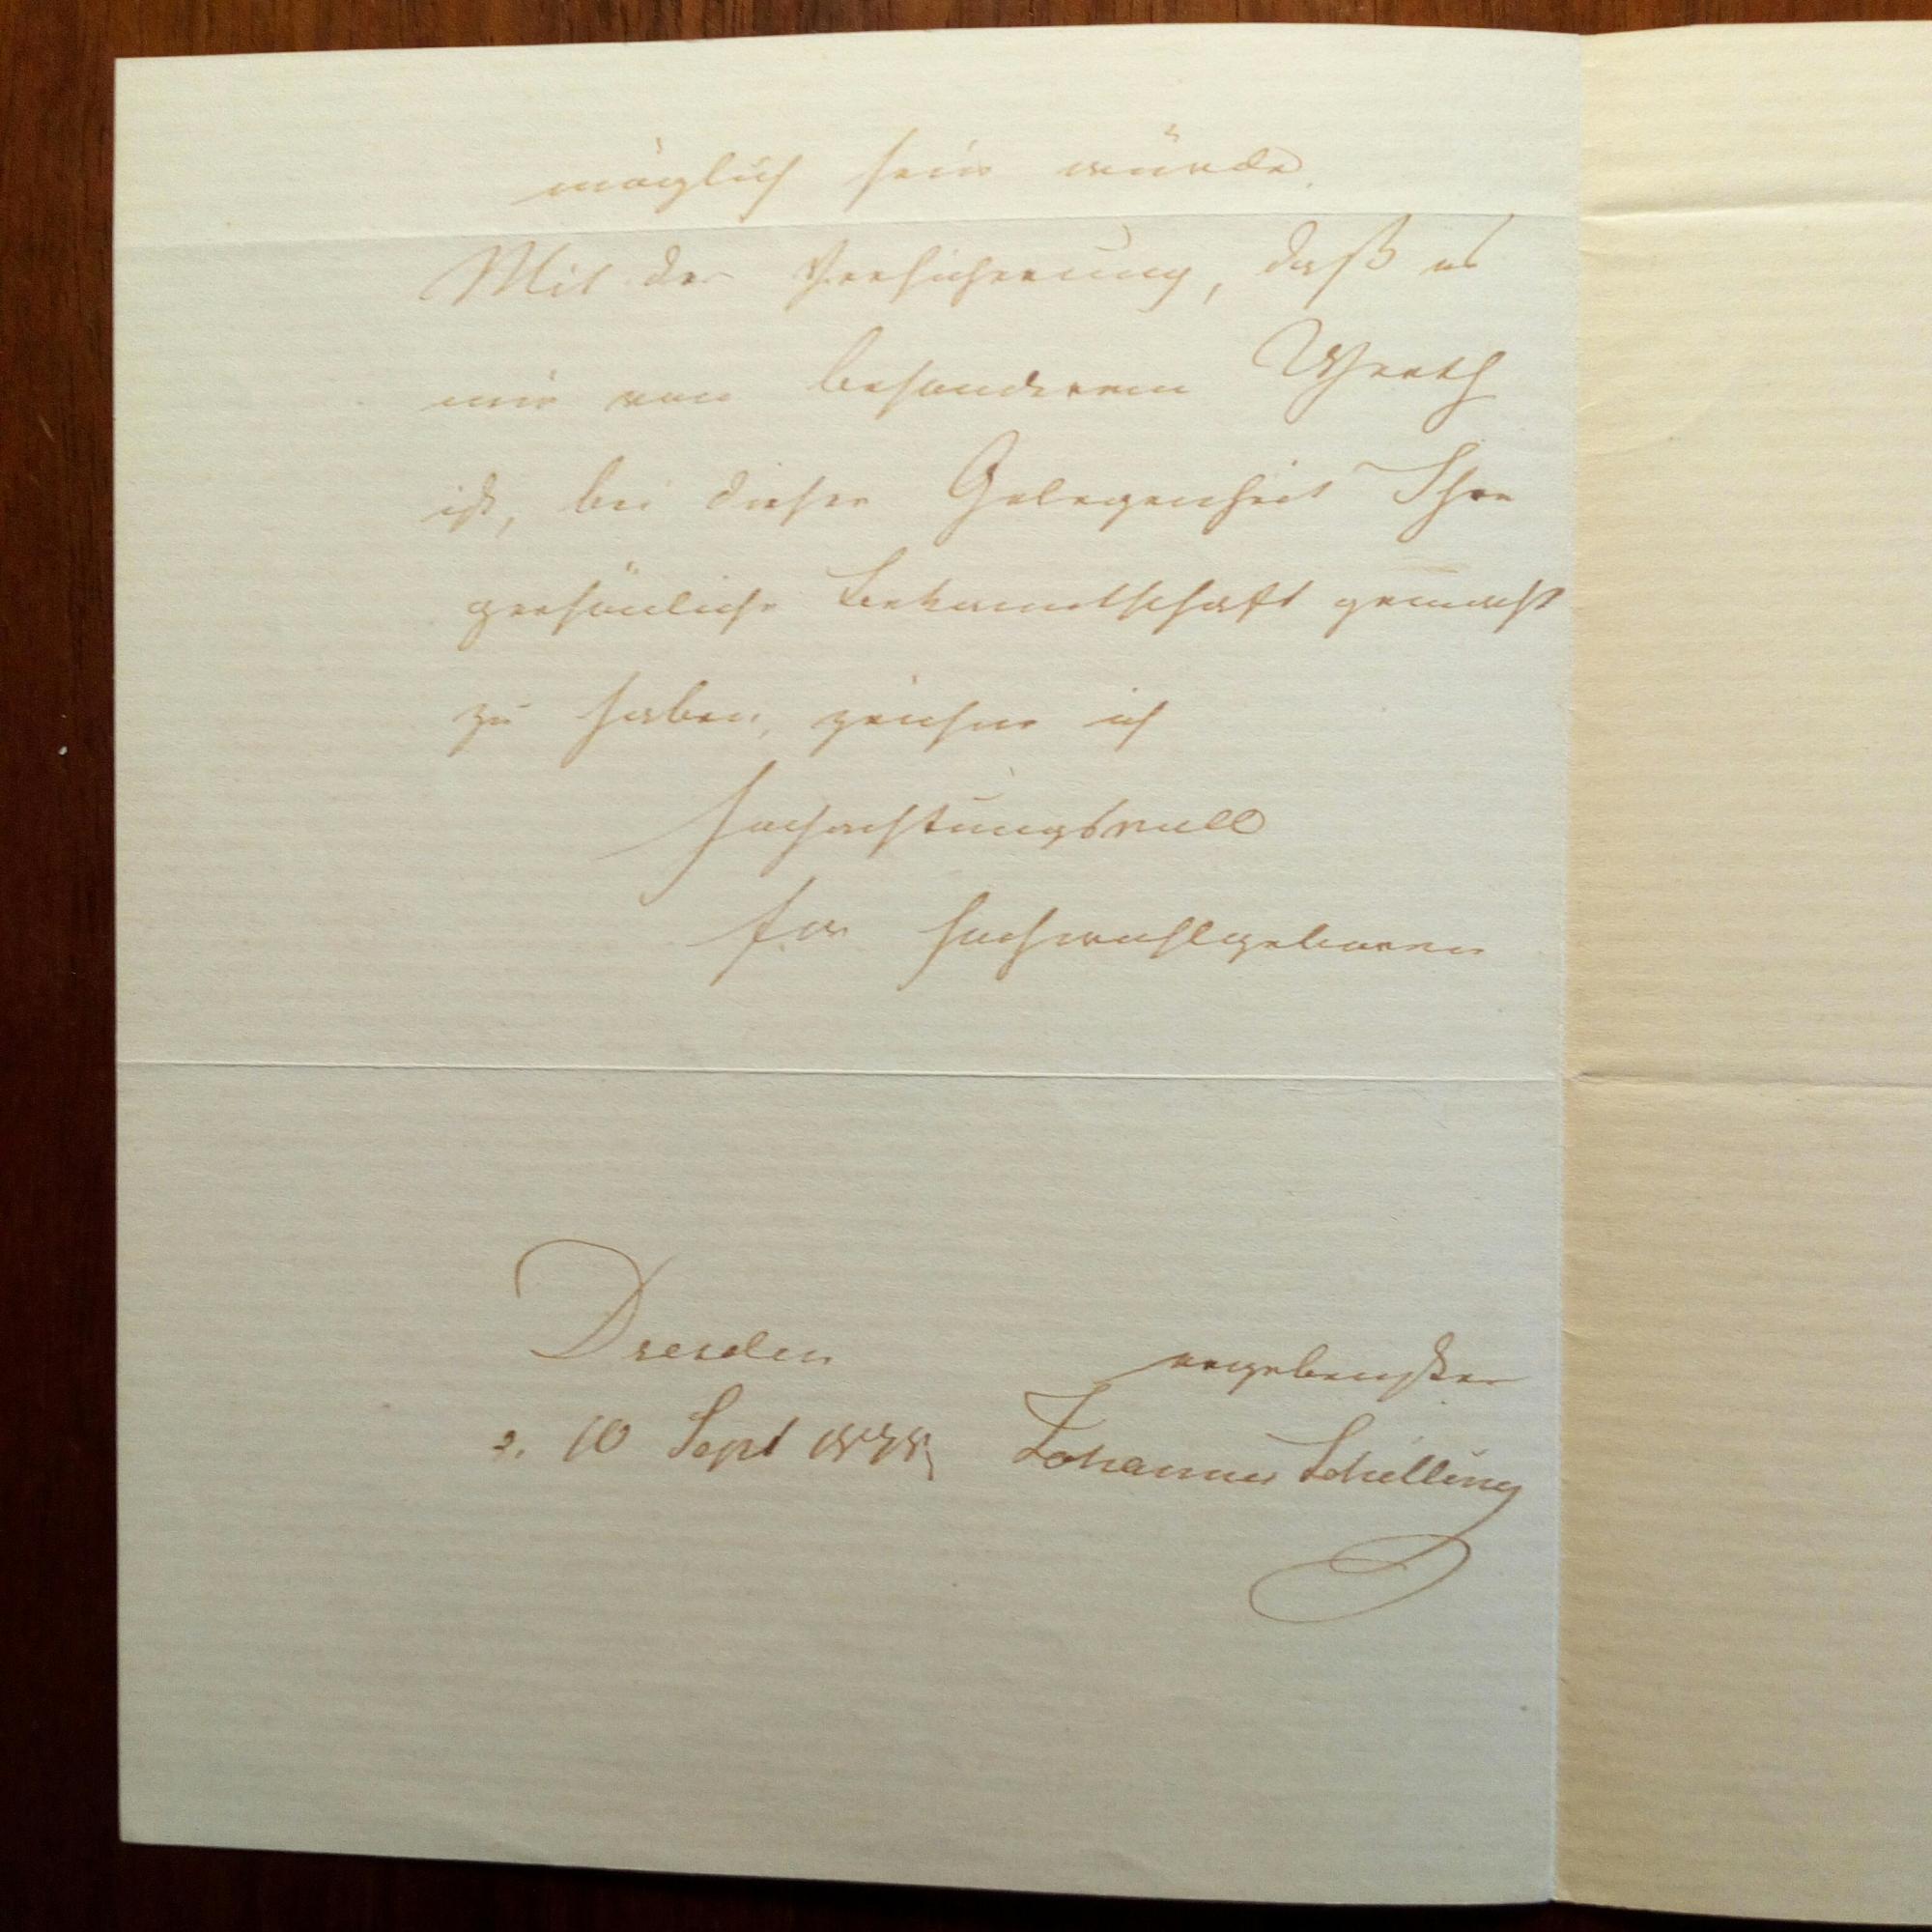 möglich sein würde.
Mit der Versicherung, daß es
mir von besonderem Werth
ist, bei dieser Gelegenheit Ihre
persönliche Bekanntschaft gemacht
zu haben, zeichne ich
hochachtungsvoll
Ew Hochwohlgeboren
Dresden
ergebenster
10 Sept
Johannes Schilling